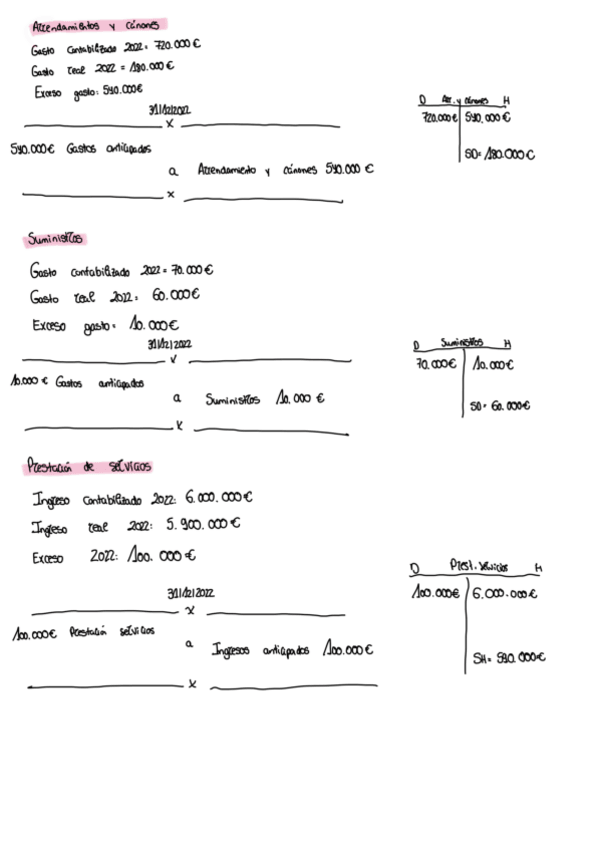 Arrendamientos y cánones
Gasto contabilizado 2022 = 720.000 €
Gasto real 2022 = 180.000 €
Exceso gasto: 540.000€
31/12/2022
x
540.000€ Gastos anticipados
a Arrendamiento y cánones 540.000 €
x
D Arr. y cánones H
720.000 € 540.000 €
SD= 180.000 €
Suministros
Gasto contabilizado 2022 = 70.000 €
Gasto real 2022: 60.000 €
Exceso gasto = 10.000 €
31/12/2022
x
10.000 € Gastos anticipados
a Suministros 10.000 €
x
D Suministros H
70.000 € 10.000 €
SD= 60.000€
Prestación de servicios
Ingreso contabilizado 2022: 6.000.000 €
Ingreso real 2022: 5.900.000 €
Exceso 2022: 100.000 €
31/12/2022
x
100.000€ Prestación servicios
a Ingresos anticipados 100.000 €
x
D Prest. servicios H
100.000€ 6.000.000€
SH= 590.000€